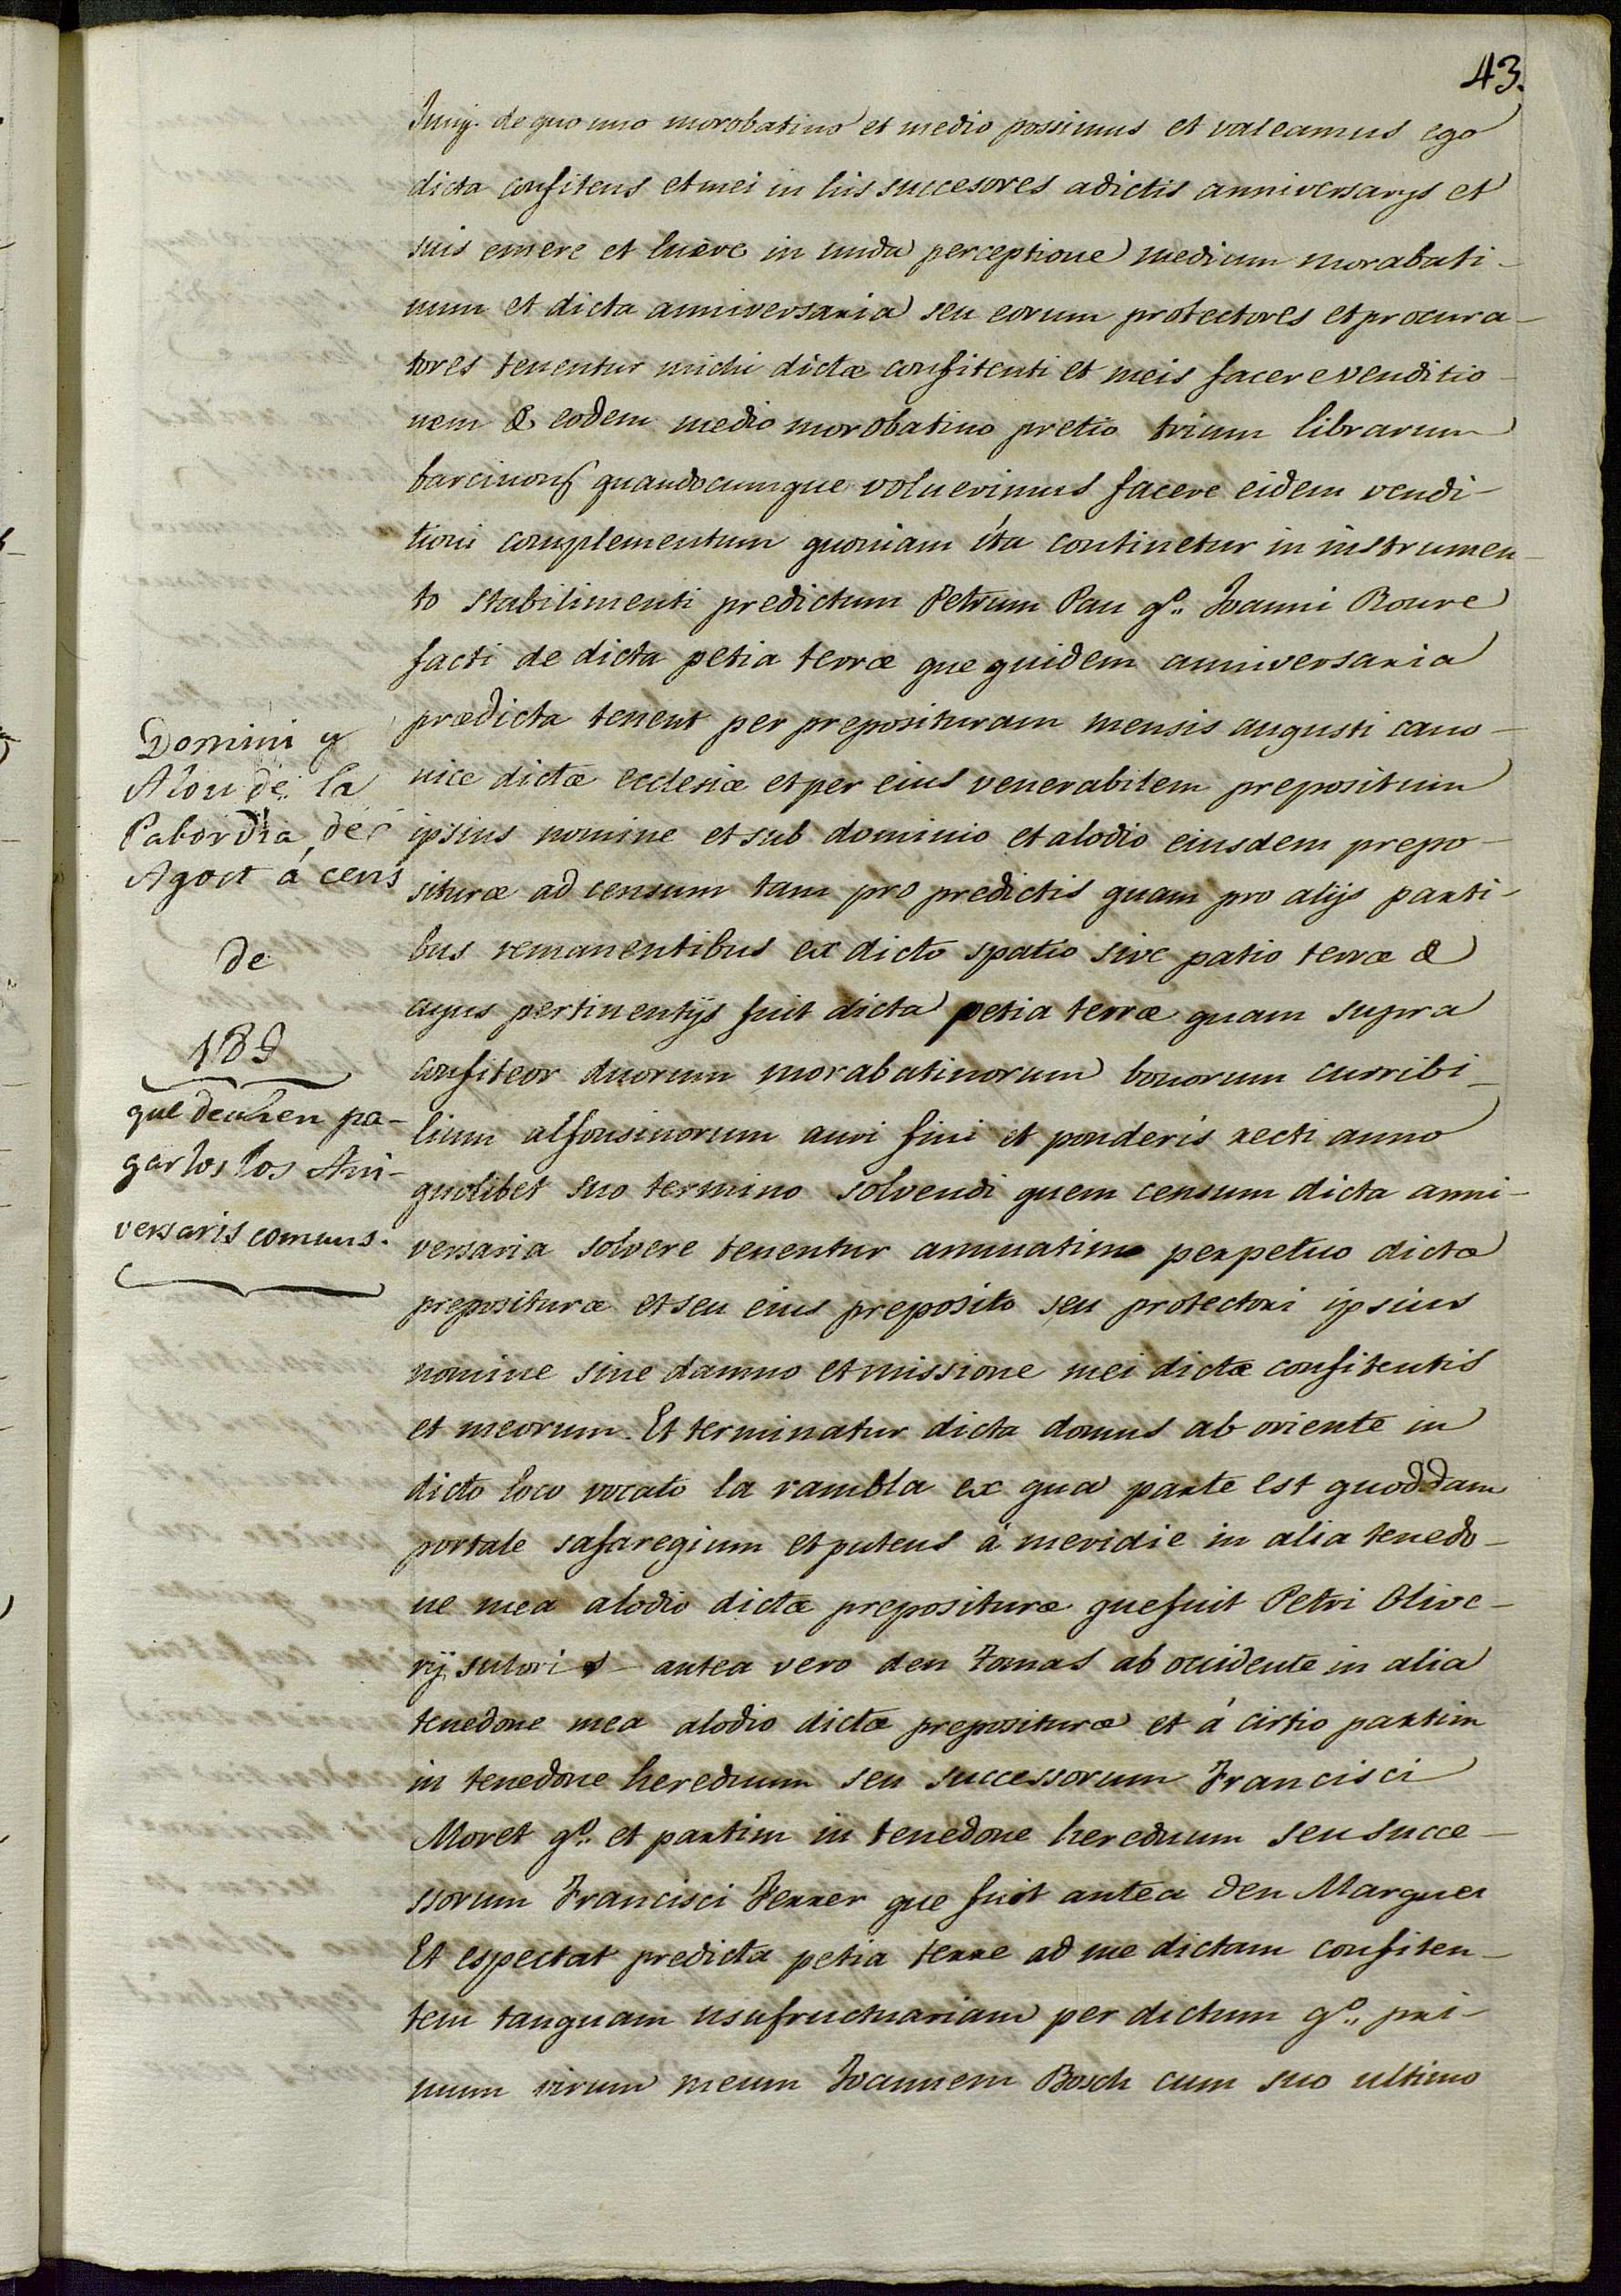 43.
Junij. de quo uno morobatino et medio possimus et valeamus ego
dicta confitens et mei in his succesores adictis anniversarys et
suis emere et luere in nuda perceptione medium morabati-
num et dicta anniversaria seu eorum protectores et procura-
tores tenentur michi dictæ confitenti et meis facere venditio-
nem & eodem medio morobatino pretio trium librarum
barcinons quandocumque voluerimus facere eidem vendi-
tioni complementum quoniam ita continetur in instrumen-
to stabilimenti predictum Petrum Pau qº. Joanni Roure
facti de dicta petia terræ que quidem anniversaria
prædicta tenent per preposituram mensis augusti cano-
nice dictæ ecclesiæ et per eius venerabilem prepositum
ipsius nomine et sub dominio et alodio eiusdem prepo-
situræ ad censum tam pro predictis quam pro alijs parti-
bus remanentibus ex dicto spatio sive patio terræ &
cujus pertinentijs fuit dicta petia terræ quam supra
confiteor duorum morabatinorum bonorum curribi-
lium alfonsinorum auri fini et ponderis recti anno
quolibet suo termino solvendi quem censum dicta anni-
versaria solvere tenentur annuatim perpetuo dictæ
prepositura et seu eius preposito seu protectori ipsius
nomine sine damno et missione mei dictæ confitentis
et meorum. Et terminatur dicta domus ab oriente in
dicto loco vocato la rambla ex qua parte est quoddam
portale safaregium et puteus á meridie in alia tenedo-
ne mea alodio dictæ prepositura que fuit Petri Olive-
rij sutoris antea vero den Tomas ab occidente in alia
tenedone mea alodio dictæ prepositura et á cirtio partim
in tenedone heredum seu successorum Francisci
Moret qº. et partim in tenedone heredum seu succe-
ssorum Francisci Ferrer que fuit antea den Marques
Et espectat predicta petia terre ad me dictam confiten-
tem tanquam usufructuariam per dictum qº. pri-
mum virum meum Joannem Bosch cum suo ultimo
Domini y
Alou de la
Pabordia de
Agost á cens
de
189
que deuhen pa-
garlos los Ani-
versaris comuns.